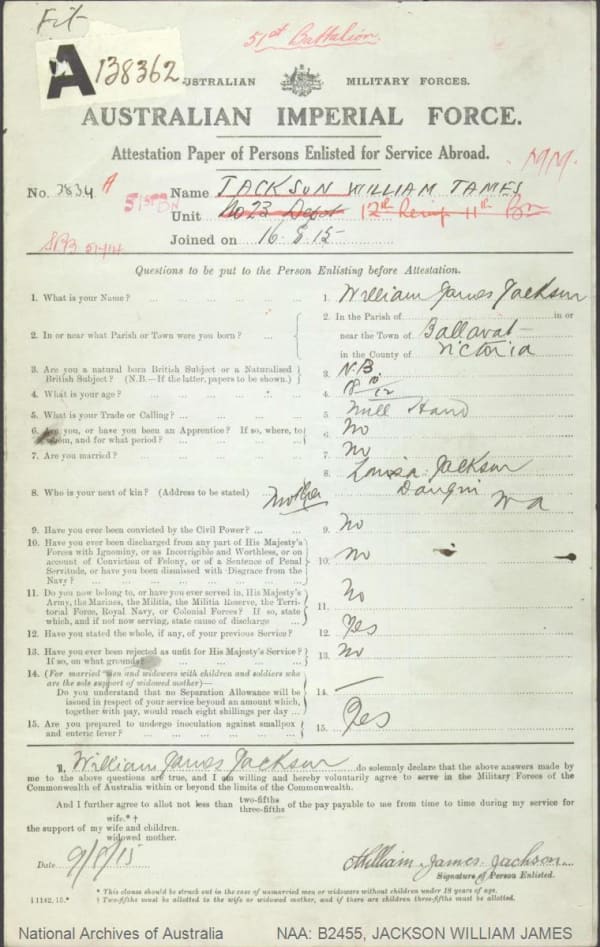 Fit
51st Battalion
A 138362
AUSTRALIAN MILITARY FORCES.
AUSTRALIAN IMPERIAL FORCE.
Attestation Paper of Persons Enlisted for Service Abroad.
M.M.
No. 3834 A Name JACKSON WILLIAM JAMES
51st BN Unit No 23 Depot 12th Reinf 11th Bn
Joined on 16.8.15
Questions to be put to the Person Enlisting before Attestation.
1. What is your Name? ... 1. William James Jackson
2. In or near what Parish or Town were you born? ... 2. In the Parish of in or
near the Town of Ballarat
in the County of Victoria
3. Are you a natural born British Subject or a Naturalised
British Subject? (N.B.—If the latter, papers to be shown.) 3. N.B.
4. What is your age? ... 4. 18 10/12
5. What is your Trade or Calling? ... 5. Mill Hand
6. Are you, or have you been an Apprentice? If so, where, to
whom, and for what period? ... 6. No
7. Are you married? ... 7. No
8. Who is your next of kin? (Address to be stated) Mother 8. Louisa Jackson
Dangin W a
9. Have you ever been convicted by the Civil Power? ... 9. No
10. Have you ever been discharged from any part of His Majesty's
Forces with Ignominy, or as Incorrigible and Worthless, or on
account of Conviction of Felony, or of a Sentence of Penal
Servitude, or have you been dismissed with Disgrace from the
Navy? ... 10. No
11. Do you now belong to, or have you ever served in, His Majesty's
Army, the Marines, the Militia, the Militia Reserve, the Terri-
torial Force, Royal Navy, or Colonial Forces? If so, state
which, and if not now serving, state cause of discharge ... 11. No
12. Have you stated the whole, if any, of your previous Service? 12. Yes
13. Have you ever been rejected as unfit for His Majesty's Service?
If so, on what grounds? 13. No
14. (For married men and widowers with children and soldiers who
are the sole support of widowed mother)—
Do you understand that no Separation Allowance will be
issued in respect of your service beyond an amount which,
together with pay, would reach eight shillings per day ... 14. —
15. Are you prepared to undergo inoculation against smallpox
and enteric fever? ... 15. Yes
I, William James Jackson do solemnly declare that the above answers made by
me to the above questions are true, and I am willing and hereby voluntarily agree to serve in the Military Forces of the
Commonwealth of Australia within or beyond the limits of the Commonwealth.
And I further agree to allot not less than two-fifths three-fifths of the pay payable to me from time to time during my service for
wife.*†
the support of my wife and children.
widowed mother.
Date 9/8/15 William James Jackson
Signature of Person Enlisted.
* This clause should be struck out in the case of unmarried men or widowers without children under 18 years of age.
† Two-fifths must be allotted to the wife or widowed mother, and if there are children three-fifths must be allotted.
National Archives of Australia NAA: B2455, JACKSON WILLIAM JAMES